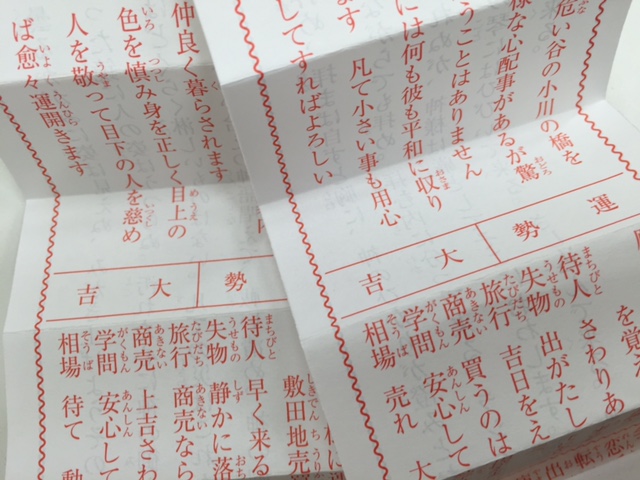 危い谷の小川の橋を
様な心配事があるが驚
うことはありません
には何も彼も平和に収り
ます　凡て小さい事も用心
してすればよろしい
運勢　大吉
待人　さわりあ
失物　出がたし
旅行　吉日をえ
商売　買うのは
学問　安心して
相場　売れ　大
仲良く暮らされます
色を慎み身を正しく目上の
人を敬って目下の人を慈め
ば愈々運開きます
勢　大吉
敷田地売
待人　早く来る
失物　静かに落
旅行　商売なら
商売　上吉さわ
学問　安心して
相場　待て　動
恋
転
出